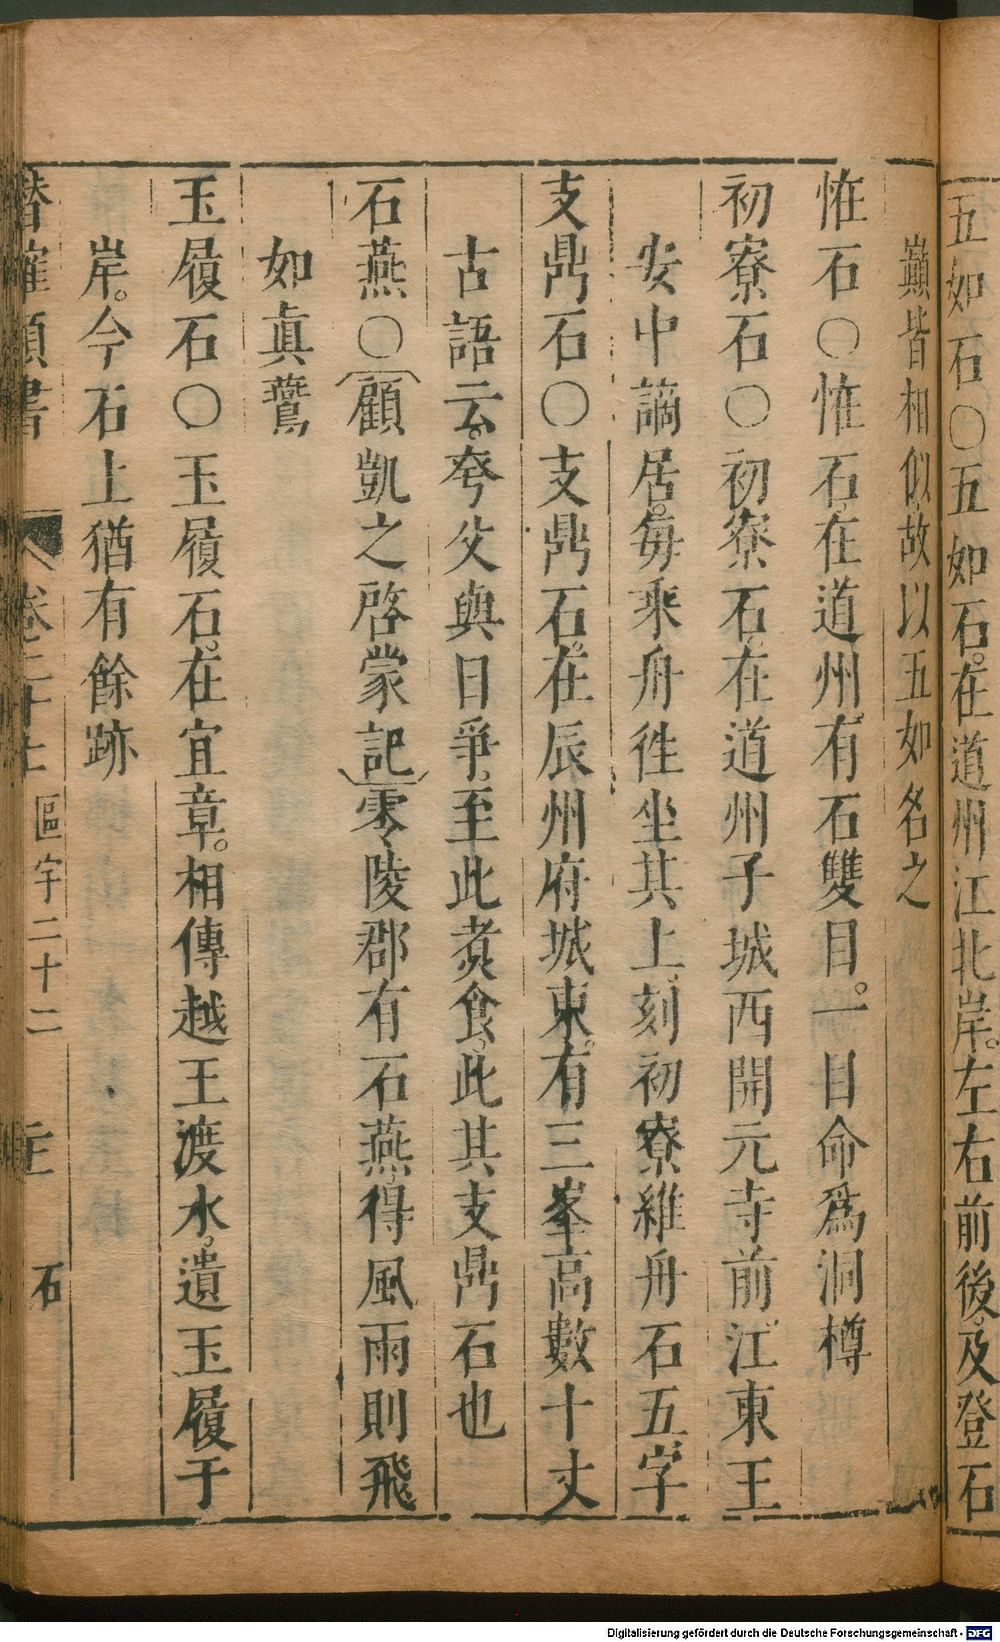 五如石〇五如石。在道州江北岸。左右前後。及登石
巓皆相似。故以五如名之
惟石〇惟石。在道州。有石雙目。一目命爲洞樽
初寮石〇初寮石。在道州子城西開元寺前。江東王
安中謫居。每乘舟徃坐其上。刻初寮維舟石五字
支鼎石〇支鼎石。在辰州府城東。有三峯高數十丈
古語云。夸父與日爭。至此煑食。此其支鼎石也
石燕〇顧凱之啓蒙記零陵郡有石燕。得風雨則飛
如眞鷰
玉履石〇玉履石。在宜章。相傳越王渡水。遺玉履于
岸。今石上猶有餘跡
類書 卷二十七 區宇二十二 石
Digitalisierung gefördert durch die Deutsche Forschungsgemeinschaft - DFG